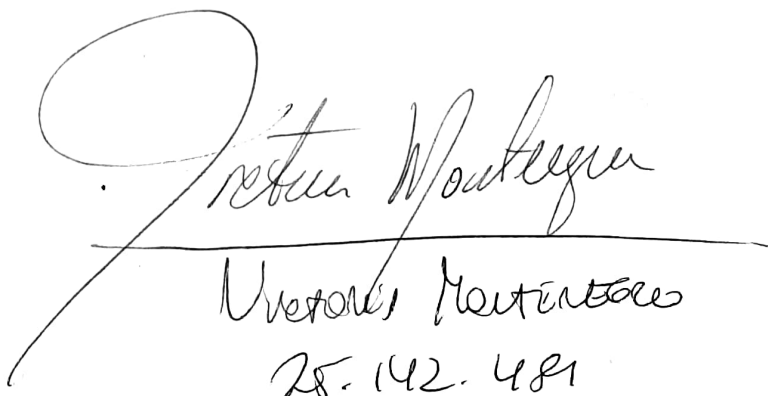 Victoria Montenegro
Victoria Montenegro
25.142.481